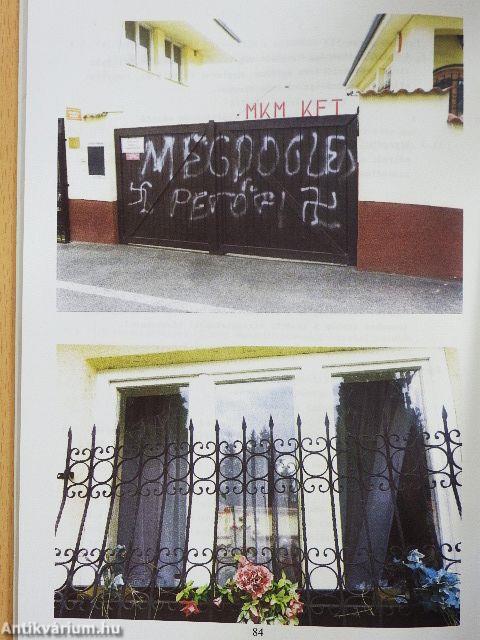 MKM KFT
MEGDÖGLESZ
PETŐFI
84
Antikvárium.hu